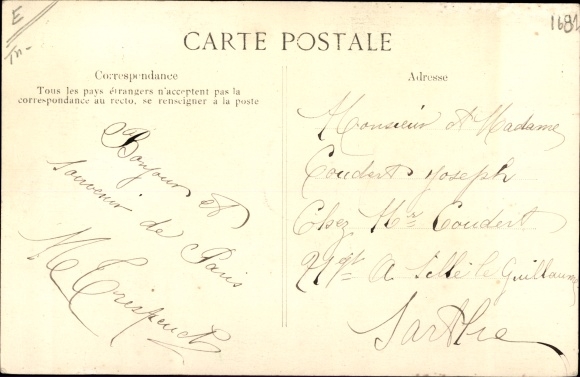 E
1681
CARTE POSTALE
Correspondance
Tous les pays étrangers n'acceptent pas la
correspondance au recto, se renseigner à la poste
Bonjour et
souvenir de Paris
Adresse
Monsieur et Madame
Coudert Joseph
Chez Mr Coudert
Ngt A Sillé le Guillaume
Sarthe